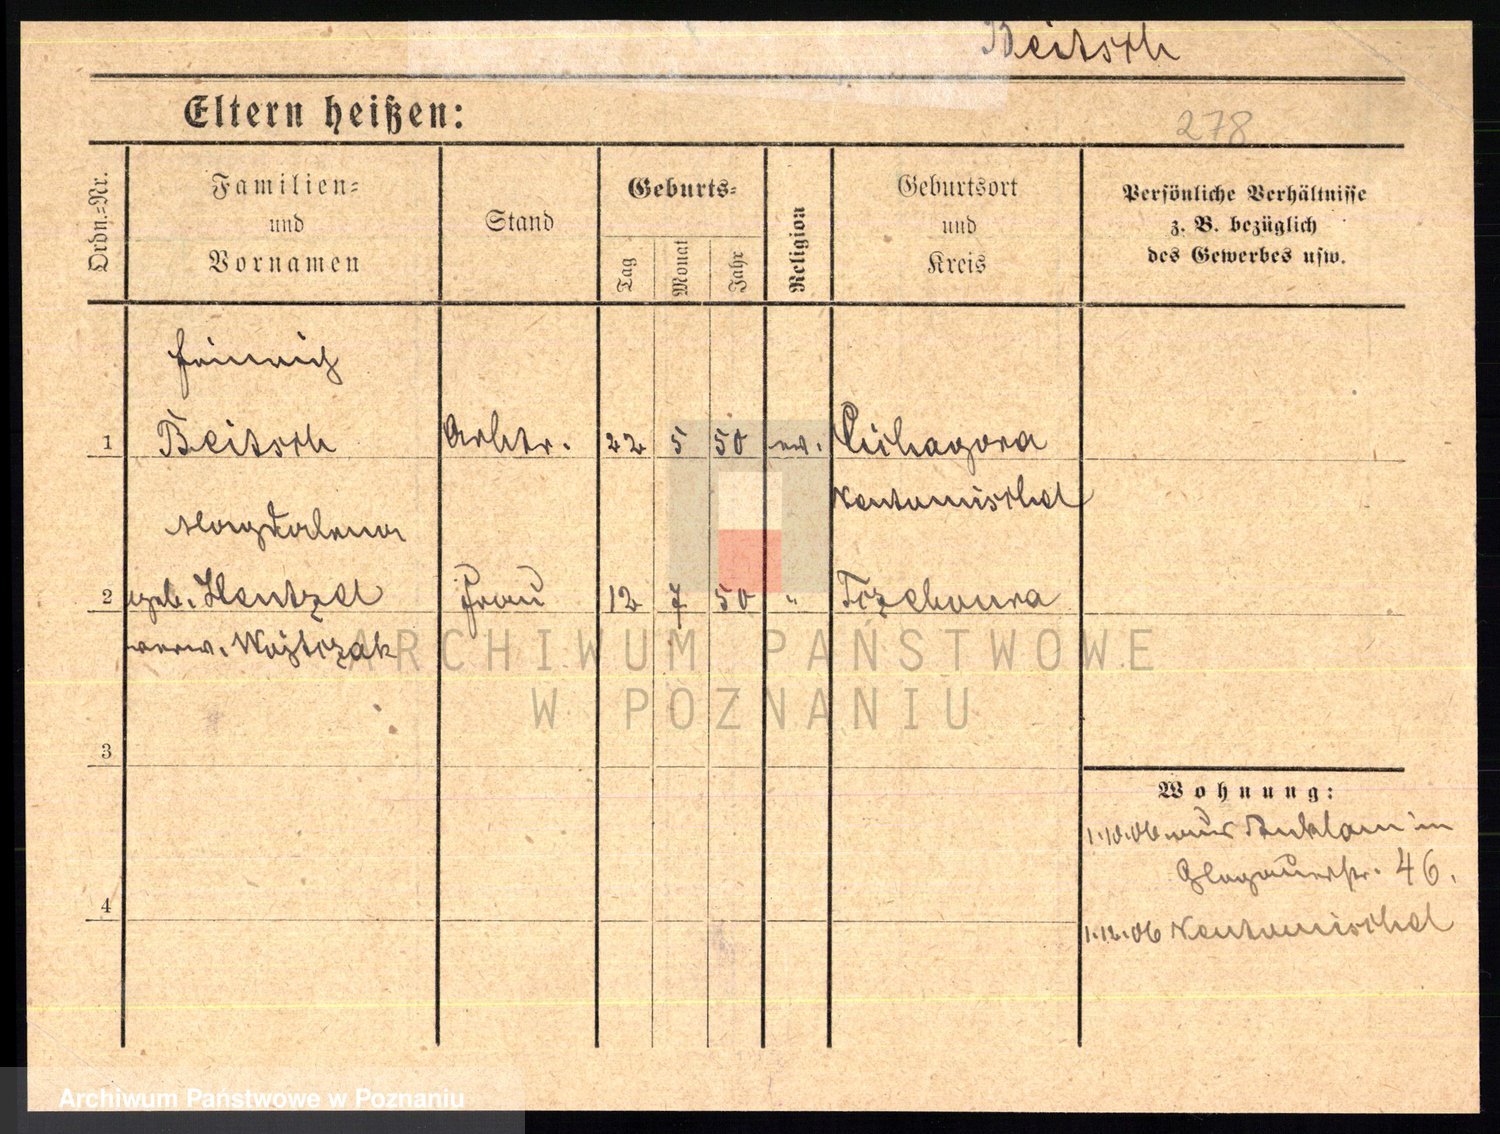 Beitsch
Eltern heißen:
278
Ordn.=Nr.
Familien=
und
Vornamen
Stand
Geburts=
Tag
Monat
Jahr
Religion
Geburtsort
und
Kreis
Persönliche Verhältnisse
z. B. bezüglich
des Gewerbes usw.
Heinrich
1 Beitsch Arbtr. 22 5 50 ev. Cichagora
Neutomischel
Magdalena
2 geb. Hentzel Frau 12 7 50 " Trzebonra
verw. Wojtczak
ARCHIWUM PAŃSTWOWE
W POZNANIU
3
Wohnung:
1.10.06 aus Anklam in
Glogauerstr. 46.
4
1.12.06 Neutomischel
Archiwum Państwowe w Poznaniu